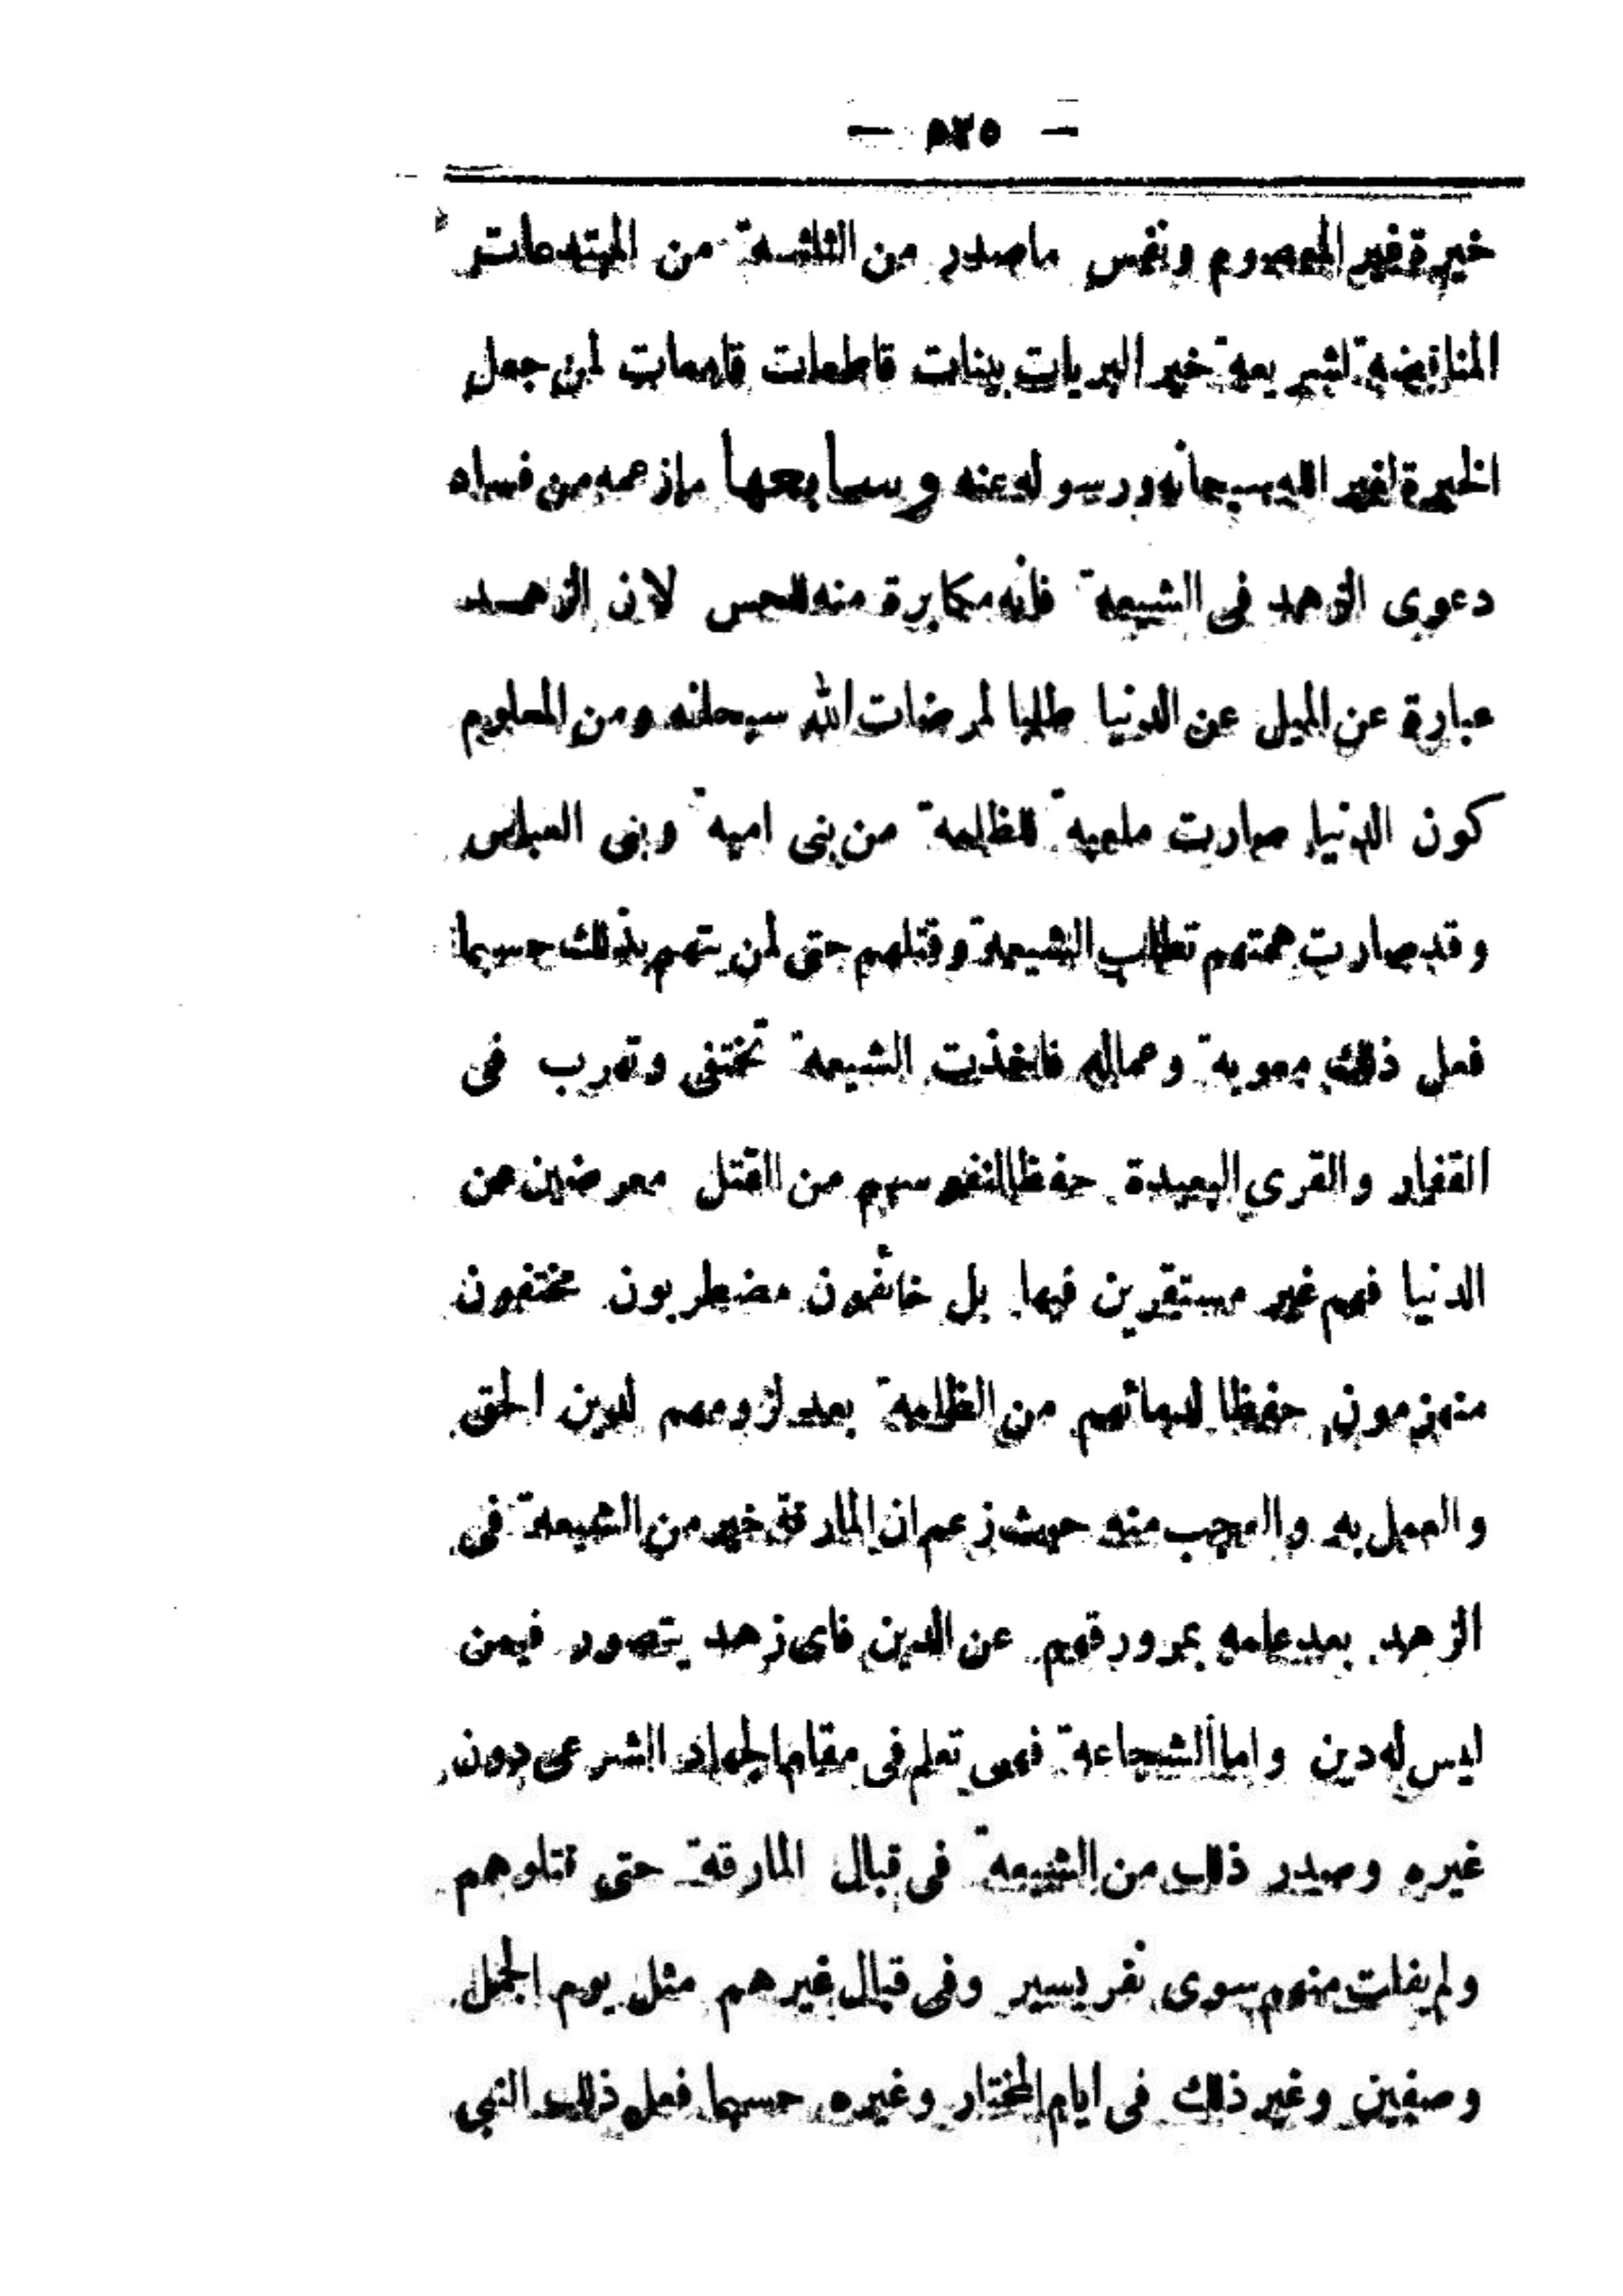 — ٥٣٥ —
خيرة غير المعصوم ونفس ماصدر من الثلثة من المبتدعات
المناقضة لشريعة خير البريات بينات قاطعات قامعات لمن جعل
الخيرة لغير الله سبحانه ورسوله عنه وسابعها مازعمه من فساد
دعوى الزهد فى الشيعة فانه مكابرة منه للحس لان الزهد
عبارة عن الميل عن الدنيا طلبا لمرضات الله سبحانه ومن المعلوم
كون الدنيا صارت ملعبة للظلمة من بنى امية وبنى العباس
وقد صارت همتهم تطلب الشيعة وقتلهم حتى لمن يتهم بذلك حسبما
فعل ذلك معوية وعماله فاخذت الشيعة تختفى وتهرب فى
القفار والقرى البعيدة حفظا لنفوسهم من القتل معرضين عن
الدنيا فهم غير مستقرين فيها بل خائفون مضطربون مختفون
منهزمون حفظا لدمائهم من الظلمة بعد لزومهم لدين الحق
والعمل به والعجب منه حيث زعم ان المارقة خير من الشيعة فى
الزهد بعد علمه بمروقهم عن الدين فاى زهد يتصور فيمن
ليس له دين واما الشجاعة فهى تعلم فى مقام الجهاد الشرعى دون
غيره وصدر ذلك من الشيعة فى قبال المارقة حتى قتلوهم
ولم يفلت منهم سوى نفر يسير وفى قبال غيرهم مثل يوم الجمل
وصفين وغير ذلك فى ايام المختار وغيره حسبما فعل ذلك النبى